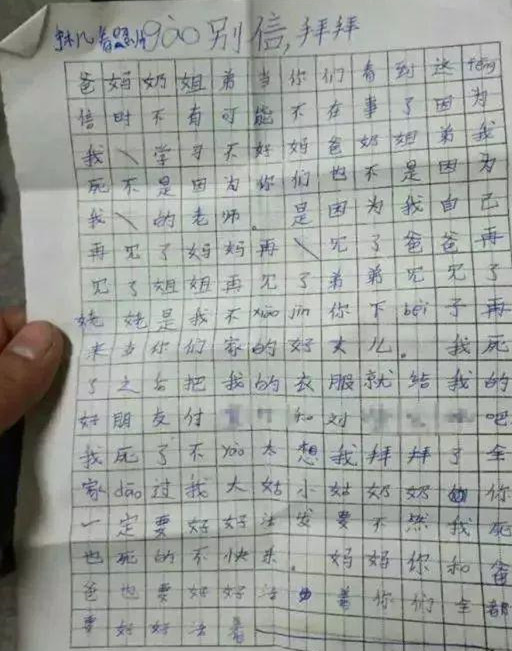 gào别信,拜拜
爸妈奶姐弟当你们看到这fēng
信时不有可能不在事了因为
我\学习不好妈爸奶姐弟我
死不是因为你们也不是因为
我\的老师。是因为我自己
再见了妈妈再\见了爸爸再
见了姐姐再见了弟弟见见了
姥姥是我不xiào jìn你下bèi子再
来当你们家的好女儿。我死
了之后把我的衣服就给我的
好朋友付 和对 吧
我死了不yào太想我拜拜了全
家dāo过我大姑小姑奶奶 你
一定要好好活 要不然我死
也死的不快乐.妈妈你和爸
爸也要好好活 着你们全都
要好好活着